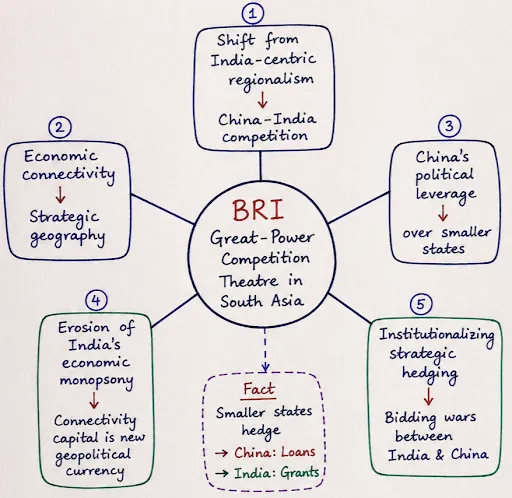 1
Shift from
India-centric
regionalism
↓
China-India
competition
2
Economic
connectivity
↓
Strategic
geography
3
China's
political
leverage
↓
over smaller
states
BRI
Great-Power
Competition
Theatre in
South Asia
4
Erosion of
India's
economic
monopsony
↓
Connectivity
capital is new
geopolitical
currency
5
Institutionalizing
strategic
hedging
↓
Bidding wars
between
India & China
Fact
Smaller states
hedge
→ China: Loans
→ India: Grants